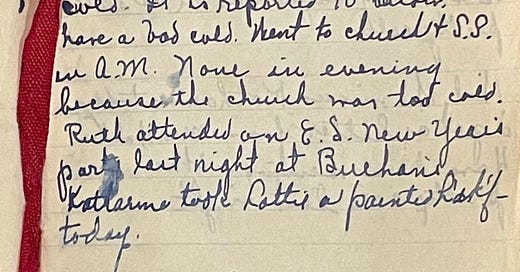 cold. It is reported 10 below.
have a bad cold. Went to church & S.S.
in A.M. None in evening
because the church was too cold.
Ruth attended an E. S. New Year's
party last night at
Katharine took Lottie a painted hdkf-
today.